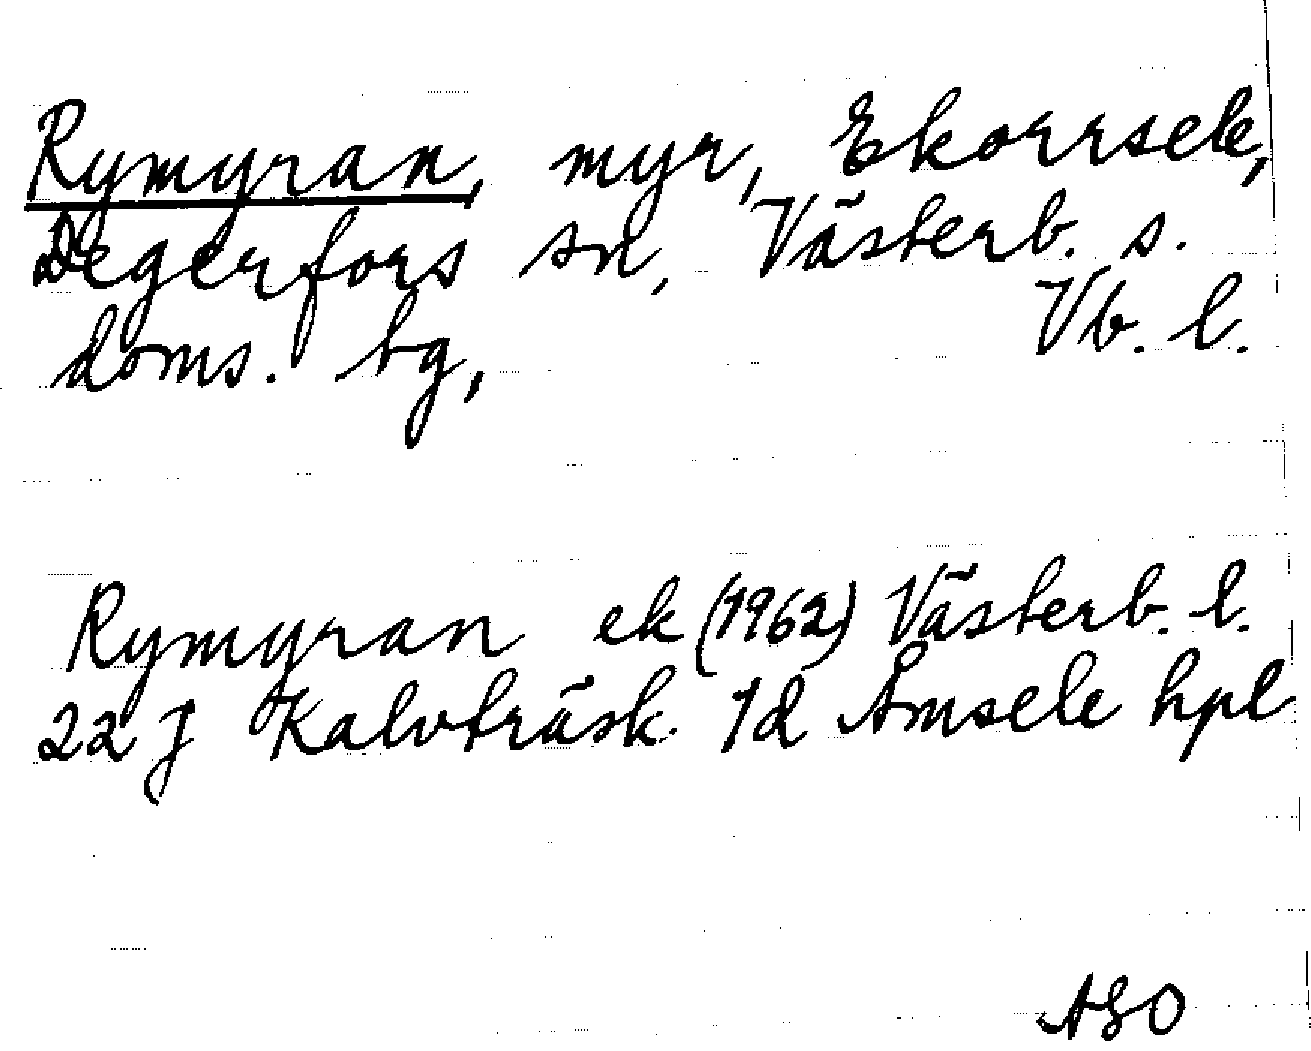 Rymyran, myr, Ekorrsele,
Degerfors sn, Västerb. s.
doms. bg, Vb. l.
Rymyran ek (1962) Västerb. l.
22 J Kalvträsk 1d Åmsele hpl
AGO